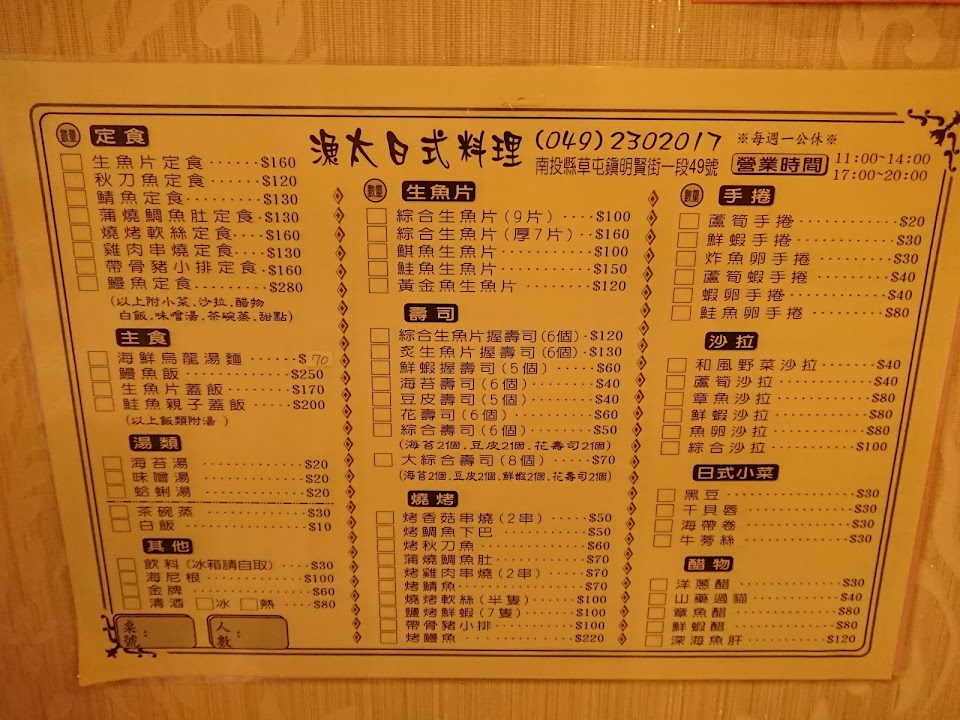 漁太日式料理 (049)2302017 ※每週一公休※
南投縣草屯鎮明賢街一段49號 營業時間 11:00~14:00
17:00~20:00
數量 定食
生魚片定食······$160
秋刀魚定食······$120
鯖魚定食·······$130
蒲燒鯛魚肚定食·$130
燒烤軟絲定食···$160
雞肉串燒定食···$130
帶骨豬小排定食·$160
鰻魚定食·······$280
(以上附小菜.沙拉.醋物
白飯.味噌湯.茶碗蒸.甜點)
主食
海鮮烏龍湯麵······$70
鰻魚飯··········$250
生魚片蓋飯······$170
鮭魚親子蓋飯·····$200
(以上飯類附湯)
湯類
海苔湯··········$20
味噌湯··········$20
蛤蜊湯··········$20
茶碗蒸··········$30
白飯············$10
其他
飲料(冰箱請自取)····$30
海尼根··········$100
金牌············$60
清酒 □冰 □熱····$80
桌號:
人數:
數量 生魚片
綜合生魚片(9片)····$100
綜合生魚片(厚7片)··$160
鯕魚生魚片········$100
鮭魚生魚片········$150
黃金魚生魚片······$120
壽司
綜合生魚片握壽司(6個)·$120
炙生魚片握壽司(6個)·$130
鮮蝦握壽司(5個)·····$60
海苔壽司(6個)·······$40
豆皮壽司(5個)·······$40
花壽司(6個)········$60
綜合壽司(6個)·······$50
(海苔2個.豆皮2個.花壽司2個)
大綜合壽司(8個)·····$70
(海苔2個.豆皮2個.鮮蝦2個.花壽司2個)
燒烤
烤香菇串燒(2串)·····$50
烤鯛魚下巴·········$50
烤秋刀魚··········$60
蒲燒鯛魚肚·········$70
烤雞肉串燒(2串)·····$70
烤鯖魚············$70
燒烤軟絲(半隻)·····$100
鹽烤鮮蝦(7隻)······$100
帶骨豬小排·········$100
烤鰻魚············$220
數量 手捲
蘆筍手捲··········$20
鮮蝦手捲··········$30
炸魚卵手捲·········$30
蘆筍蝦手捲·········$40
蝦卵手捲··········$40
鮭魚卵手捲·········$80
沙拉
和風野菜沙拉·······$40
蘆筍沙拉··········$40
章魚沙拉··········$80
鮮蝦沙拉··········$80
魚卵沙拉··········$80
綜合沙拉··········$100
日式小菜
黑豆·············$30
干貝唇············$30
海帶卷············$30
牛蒡絲············$30
醋物
洋蔥醋············$30
山藥過貓··········$40
章魚醋············$80
鮮蝦醋············$80
深海魚肝··········$120